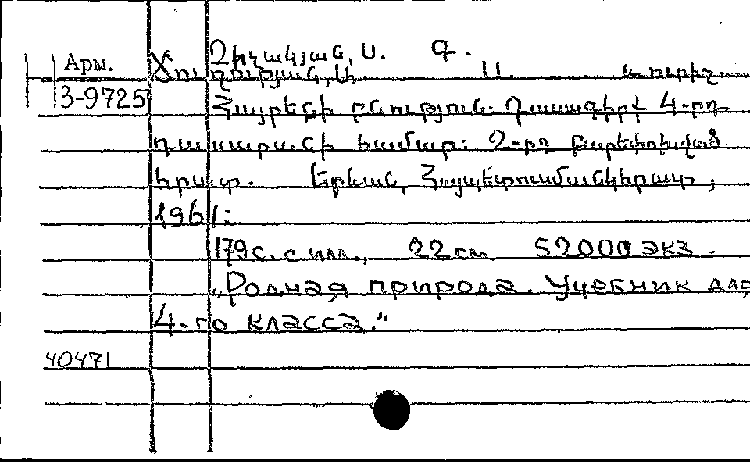 Арм.
3-9725
Չիչակյան, Ս. Գ.
և ուրիշ.
Հայրենի բնություն. Դասագիրք 4-րդ
դասարանի համար: 2-րդ բարեփոխված
հրատ. Երևան, Հայպետուսմանկհրատ,
1961:
179 с. с илл., 22 см. 52000 экз.
„Родная природа. Учебник для
4-го класса."
40471